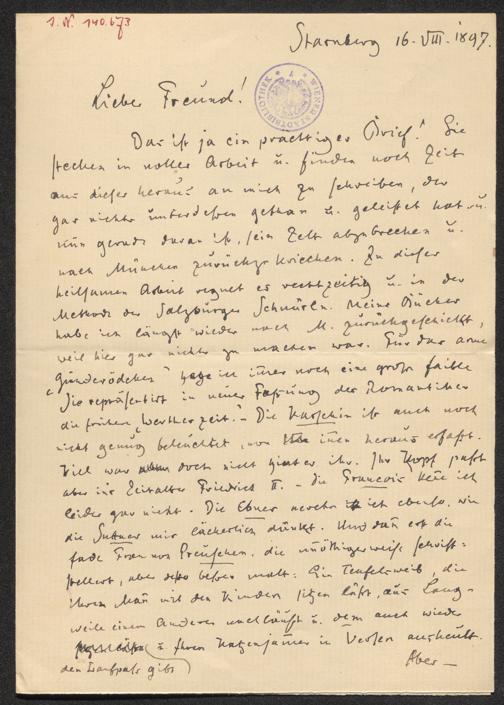 J. N. 140.673
Starnberg 16. VIII. 1897.
WIENER STADTBIBLIOTHEK
Lieber Freund!
Das ist ja ein prächtiger Brief! Sie
stecken in voller Arbeit u. finden noch Zeit
aus dieser heraus an mich zu schreiben, der
gar nichts unterdessen gethan u. geleistet hat u.
nun gerade daran ist, sein Zelt abzubrechen u.
nach München zurückzukriechen. Zu dieser
heilsamen Arbeit regnet es rechtzeitig u. in der
Methode der Salzburger Schnürln. Meine Bücher
habe ich längst wieder nach M. zurückgeschickt,
weil hier gar nichts zu machen war. Für das arme
"Günderödchen" habe ich immer noch eine große faible
Sie repräsentirt in neuer Fassung der Romantiker
die frühere "Wertherzeit". – Die Karschin ist auch noch
nicht genug beleuchtet, von innen heraus erfasst.
Viel war doch nicht hinter ihr. Ihr Kopf passt
aber ins Zeitalter Friedrich II. – die François kenne ich
leider gar nicht. Die Ebner verehre ich ebenso, wie
die Suttner mir lächerlich dünkt. Und dann erst die
fade Frau von Preuschen, die unnöthigerweise schrift-
stellert, aber desto besser malt: Ein Teufelsweib, die
ihren Mann mit den Kindern sitzen läßt, aus Lang-
weile einem Anderen nachläuft u. dem auch wieder
den Laufpass gibt u. ihren Katzenjammer in Versen ausheult.
Aber –